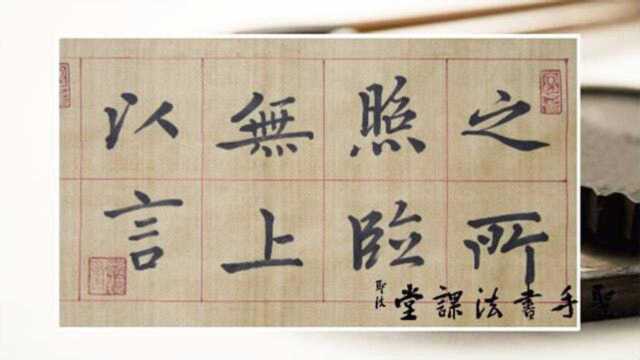 之所
照臨
無上
以言
聖手書法課堂